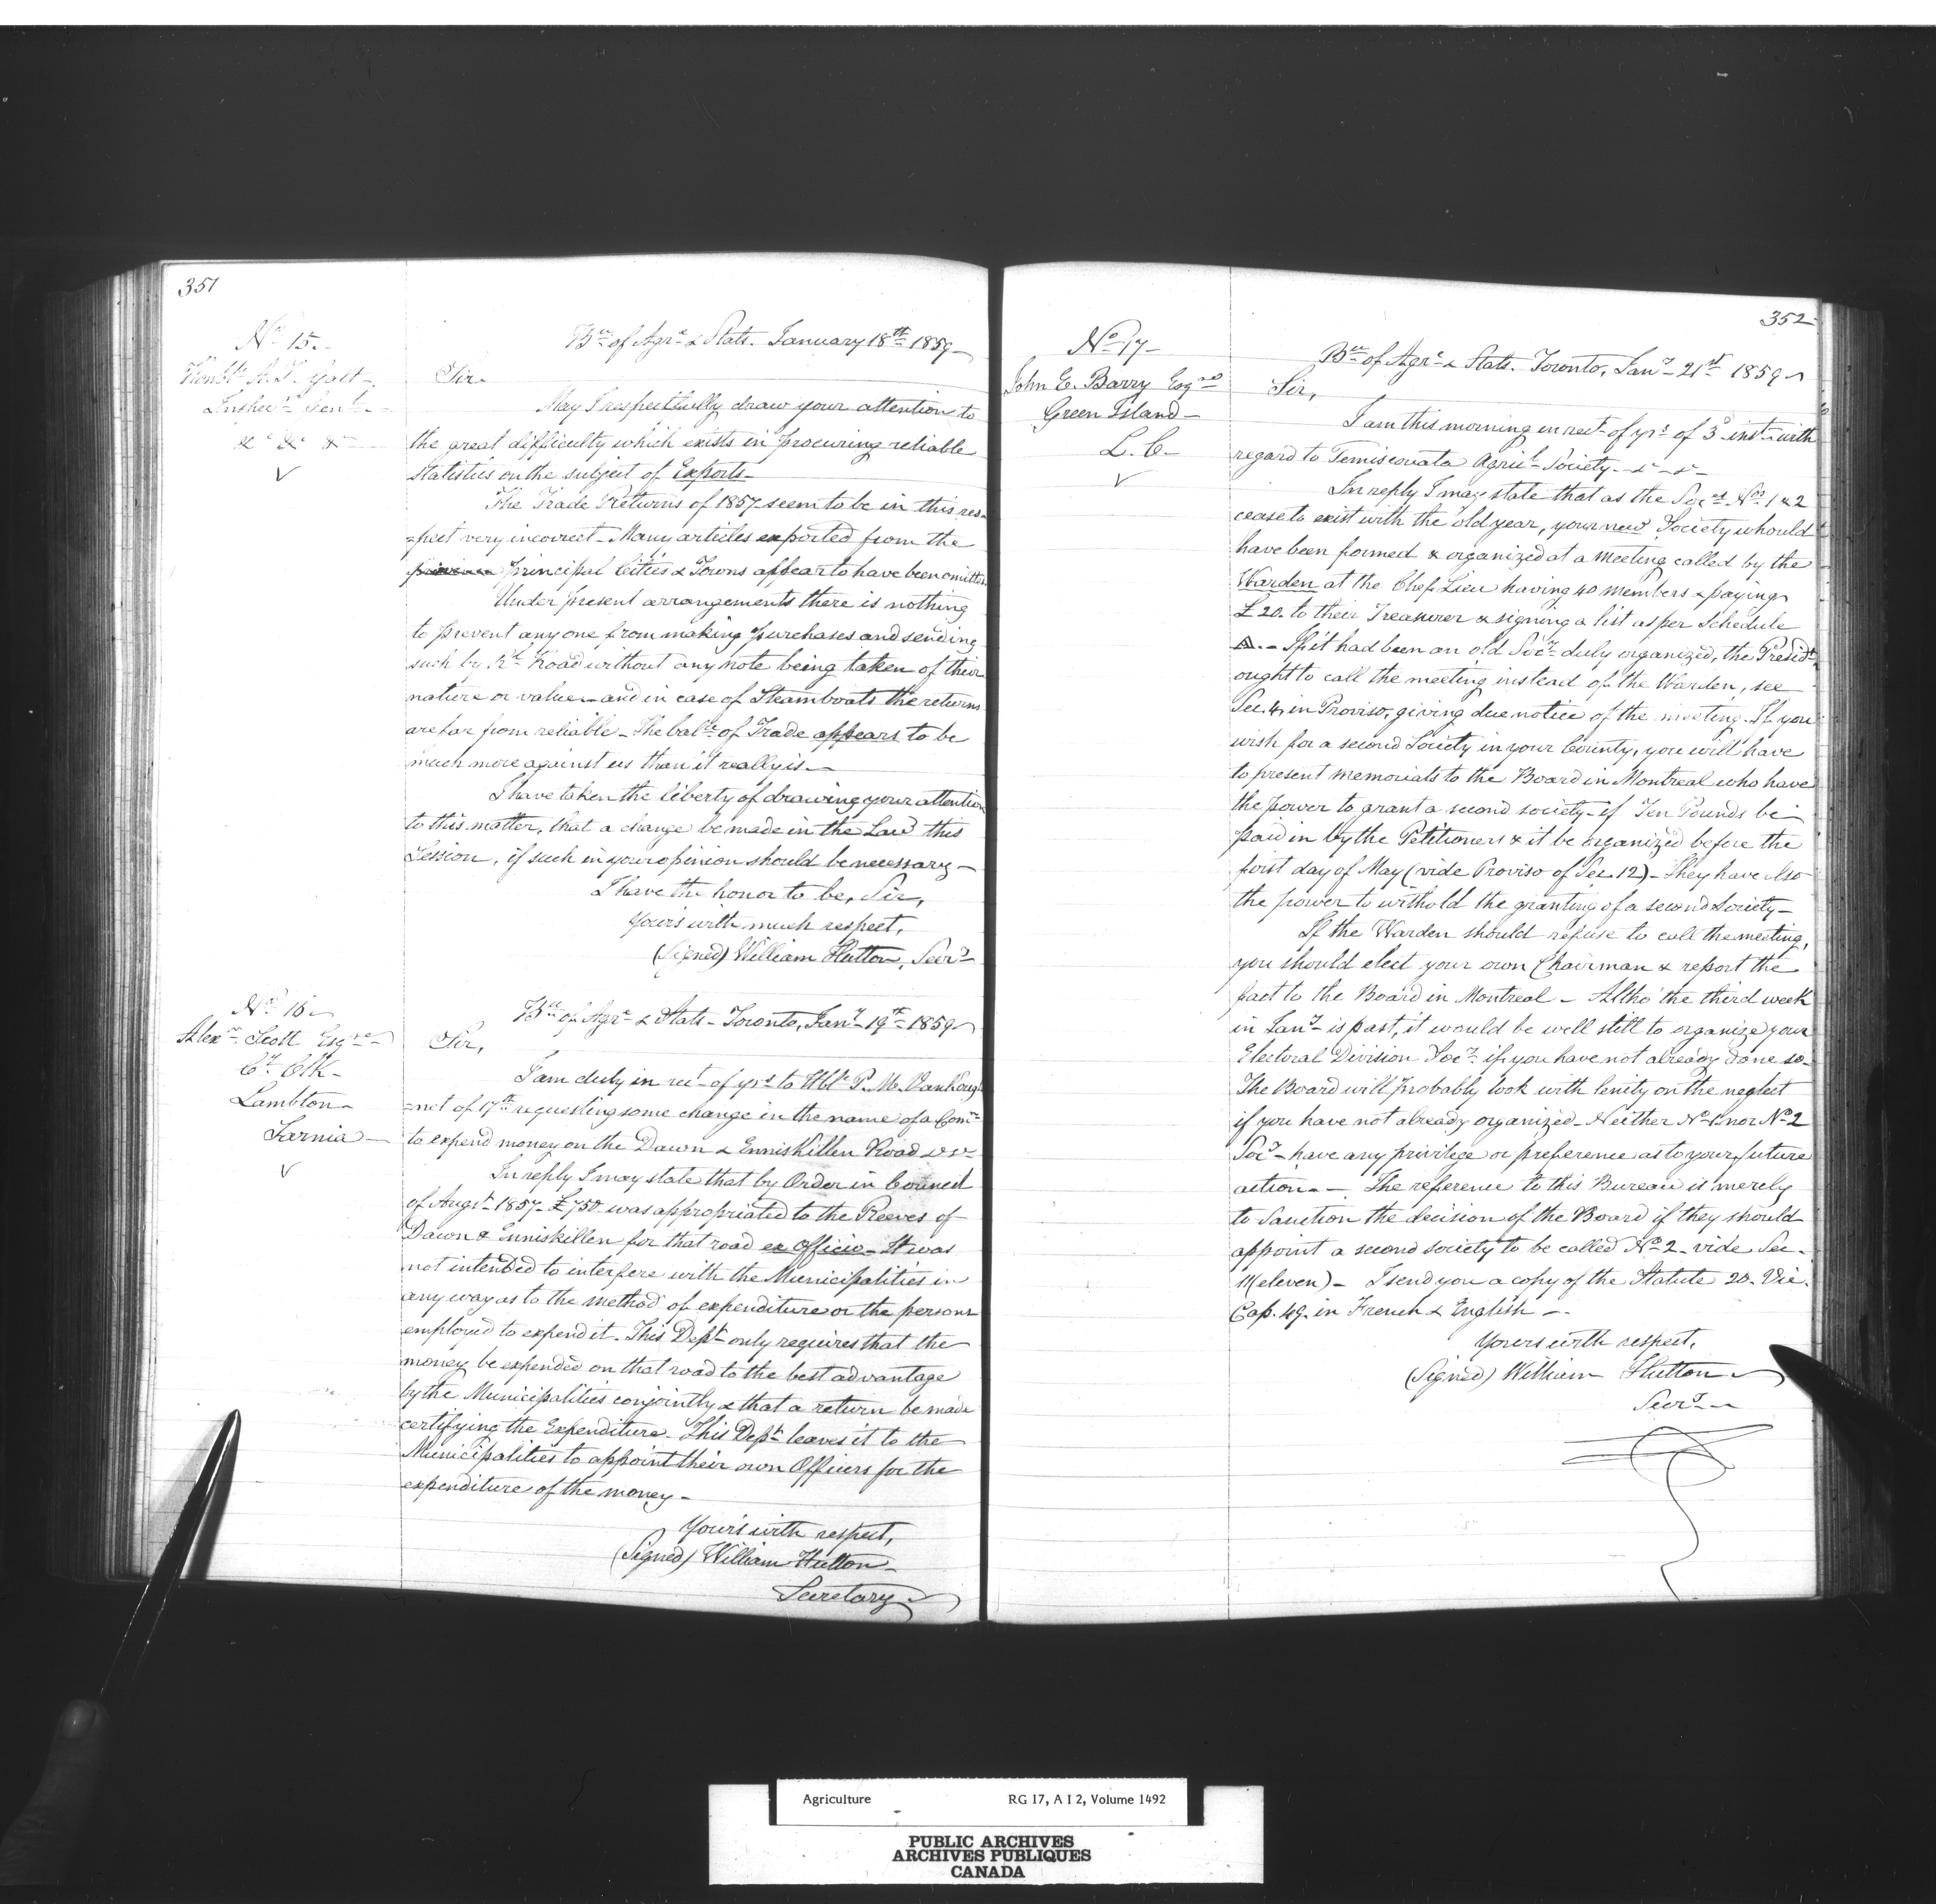 351
No 15.
Honble A. T. Galt
Inspecr Genl
&c &c &c
Bu of Agre & Stats. January 18th 1859
Sir.
May I respectfully draw your attention to
the great difficulty which exists in procuring reliable
statistics on the subject of Exports
The Trade Returns of 1857 seem to be in this res-
=pect very incorrect - Many articles exported from the
principal Cities & Towns appear to have been omitted
Under present arrangements there is nothing
to prevent any one from making purchases and sending
such by Rl Road without any note being taken of their
nature or value - and in case of Steamboats the returns
are far from reliable - The balce of Trade appears to be
much more against us than it really is -
I have taken the liberty of drawing your attention
to this matter, that a change be made in the Law this
Session, if such in your opinion should be necessary -
I have the honor to be, Sir,
Yours with much respect,
(Signed) William Hutton, Secry
No 16
Alexr Scott Esqre
Cy Clk -
Lambton -
Sarnia -
Bu of Agre & Stats - Toronto, Jany 19th 1859
Sir,
I am duly in rect of yrs to Hble P. M. Vankough
=net of 17th requesting some change in the name of a Comr
to expend money on the Dawn & Enniskillen Road &c
In reply I may state that by Order in Council
of Augt 1857 - £750 was appropriated to the Reeves of
Dawn & Enniskillen for that road ex Officio - It was
not intended to interfere with the Municipalities in
any way as to the method of expenditure or the persons
employed to expend it. This Dept only requires that the
money be expended on that road to the best advantage
by the Municipalities conjointly & that a return be made
certifying the Expenditure. This Dept leaves it to the
Municipalities to appoint their own Officers for the
expenditure of the money -
Yours with respect,
(Signed) William Hutton
Secretary
352
No 17
John E. Barry Esqre
Green Island -
L. C.
Bu of Agre & Stats. Toronto, Jany 21st 1859
Sir,
I am this morning in rect of yrs of 3d inst with
regard to Temiscouata Agricl Society - &c &c
In reply I may state that as the Socs Nos 1 & 2
cease to exist with the old year, your new Society whould
have been formed & organized at a meeting called by the
Warden at the Chef Lieu having 40 members & paying
£20. to their Treasurer & signing a list as per Schedule
A. - If it had been an old Socy duly organized, the Presidt
ought to call the meeting instead of the Warden, see
Sec. 4, in Proviso, giving due notice of the meeting. If you
wish for a second Society in your County, you will have
to present memorials to the Board in Montreal who have
the power to grant a second society - if Ten Pounds be
paid in by the Petitioners & it be organized before the
first day of May (vide Proviso of Sec. 12) - They have also
the power to withold the granting of a second Society -
If the Warden should refuse to call the meeting,
you should elect your own Chairman & report the
fact to the Board in Montreal - Altho' the third week
in Jany is past, it would be well still to organize your
Electoral Division Socy if you have not already done so -
The Board will probably look with lenity on the neglect
if you have not already organized - Neither No 1 nor No 2
Socy - have any privilege or preference as to your future
action. - The reference to this Bureau is merely
to Sanction the decision of the Board if they should
appoint a second society to be called No 2 - vide Sec.
11 (eleven) - I send you a copy of the Statute 20. Vic.
Cap. 49. in French & English -
Yours with respect,
(Signed) William Hutton
Secry
Agriculture RG 17, A I 2, Volume 1492
PUBLIC ARCHIVES
ARCHIVES PUBLIQUES
CANADA